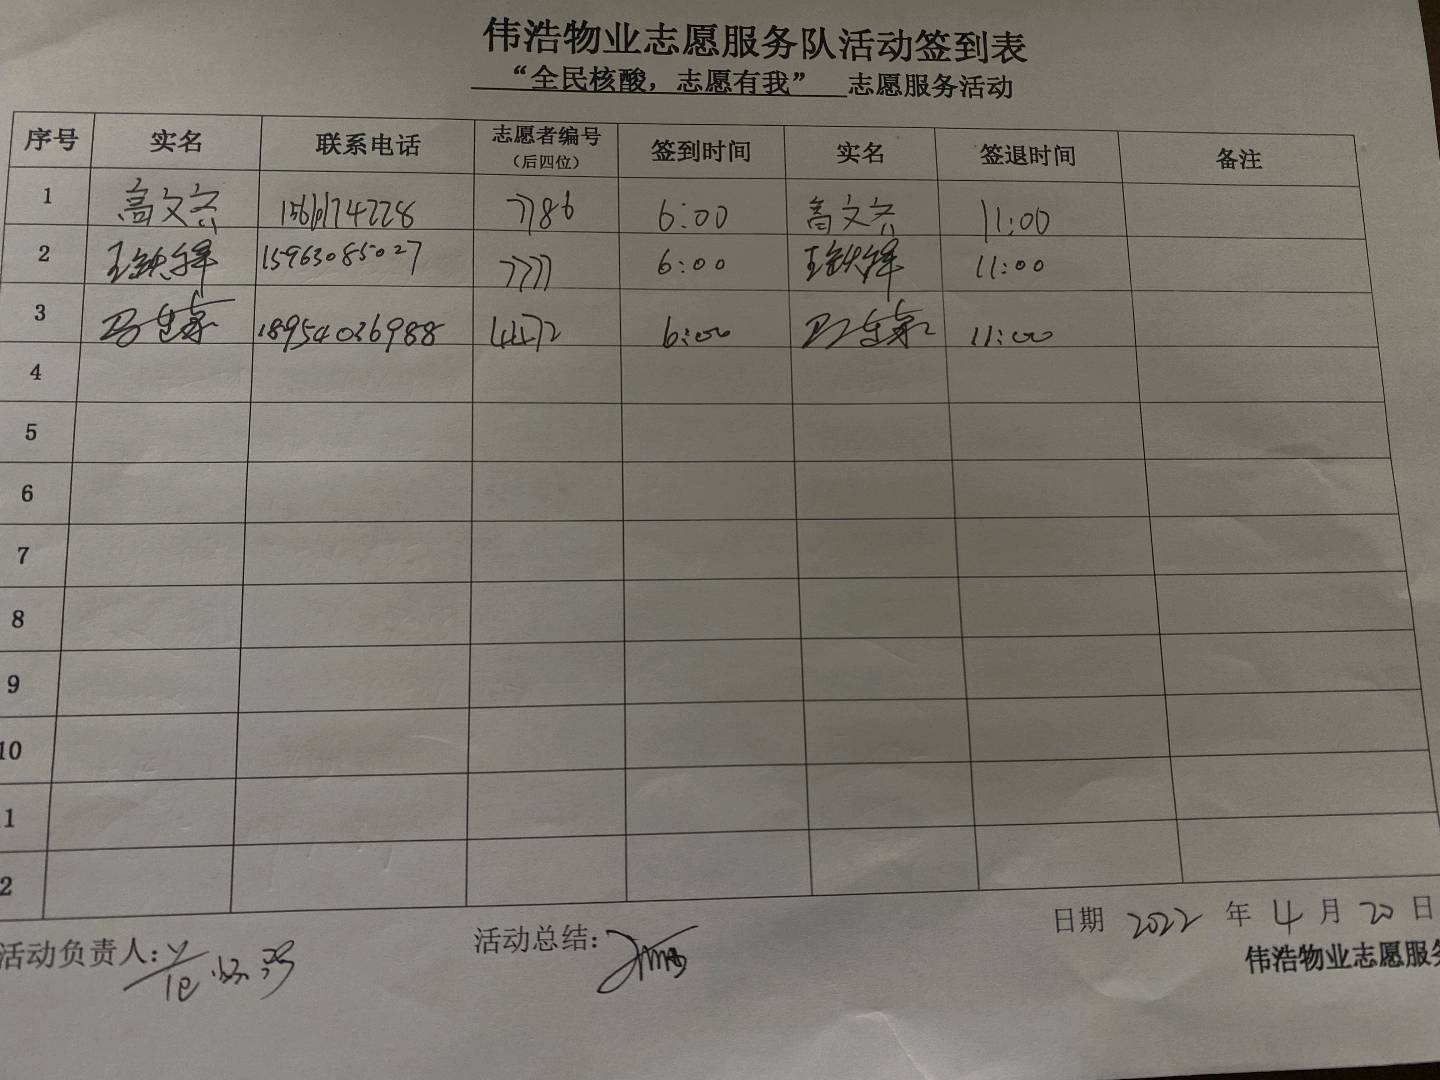 伟浩物业志愿服务队活动签到表
“全民核酸，志愿有我” 志愿服务活动
序号 实名 联系电话 志愿者编号（后四位） 签到时间 实名 签退时间 备注
1 高文六 7786 6:00 高文六 11:00
2 15963085027 7777 6:00 11:00
3 18954036988 4472 6:00 11:00
4
5
6
7
8
9
10
1
2
活动负责人：
活动总结：
日期 2022 年 4 月 20 日
伟浩物业志愿服务